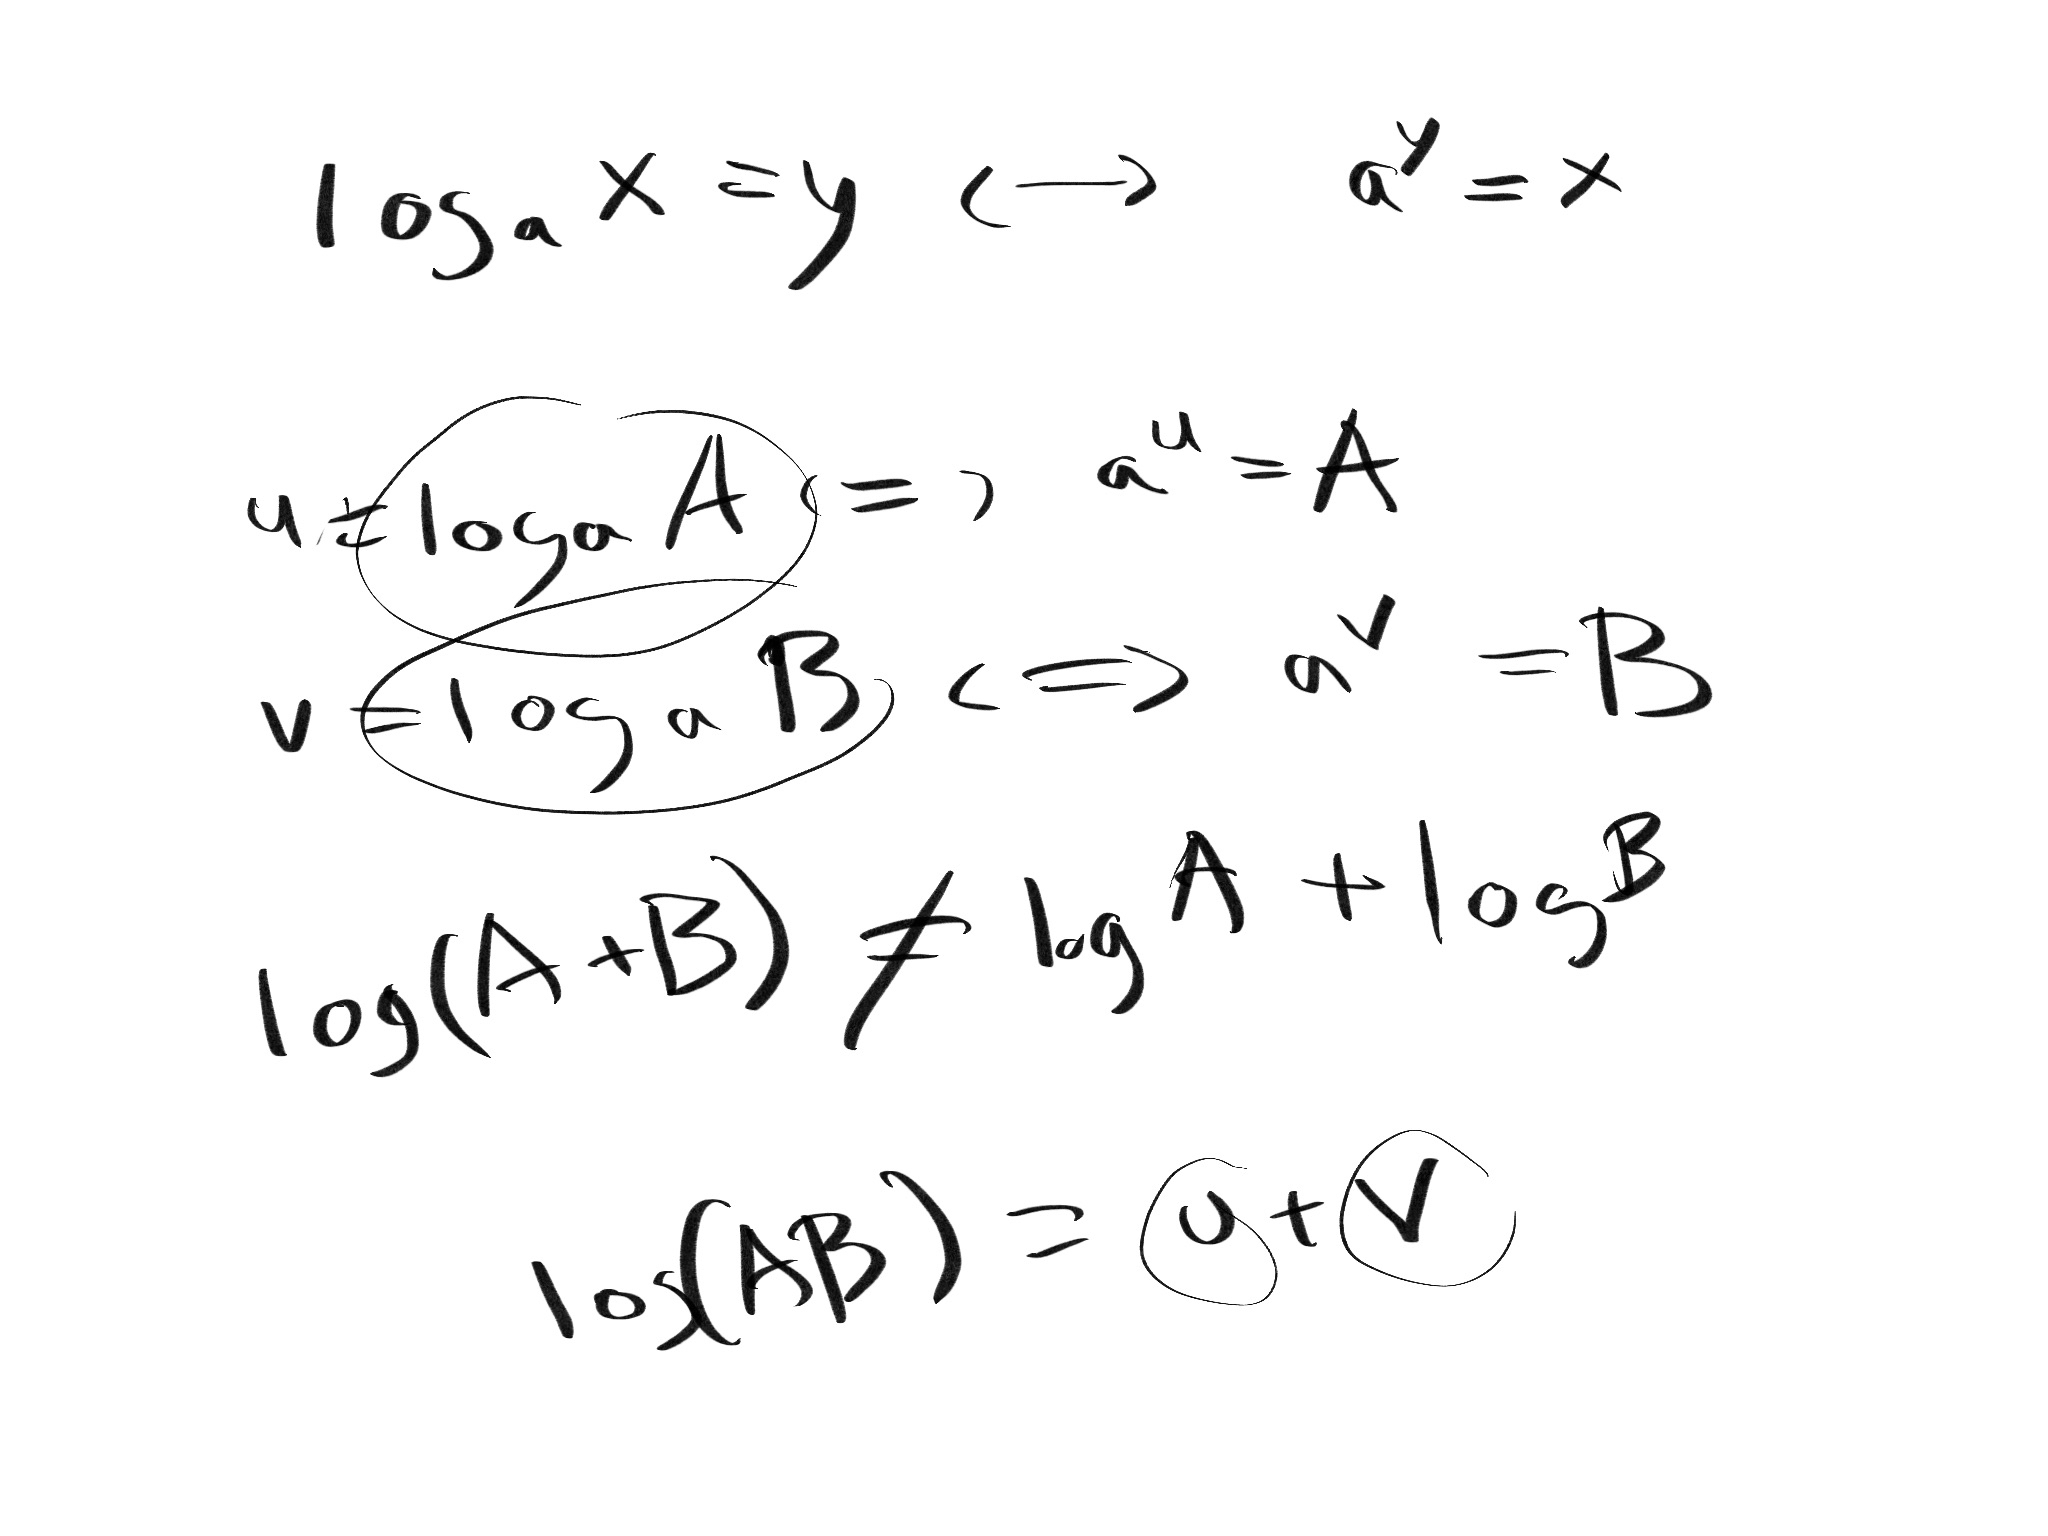 logₐ x = y ⟷ aʸ = x
u = logₐ A ⟺ aᵘ = A
v = logₐ B ⟺ aᵛ = B
log(A+B) ≠ log A + log B
log(AB) = u + v